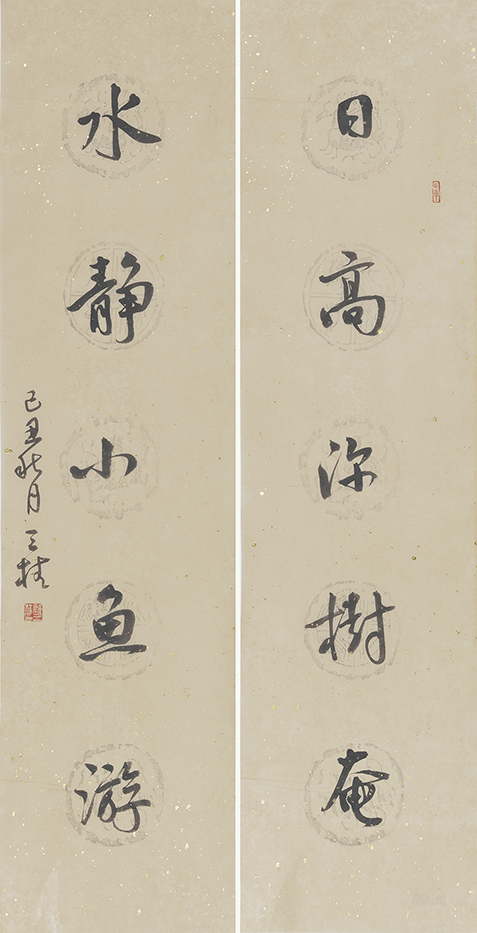 日高深樹奄
水静小鱼游
己丑秋月三桂